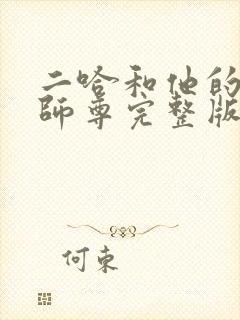 二哈和他的
師尊完整版
何束